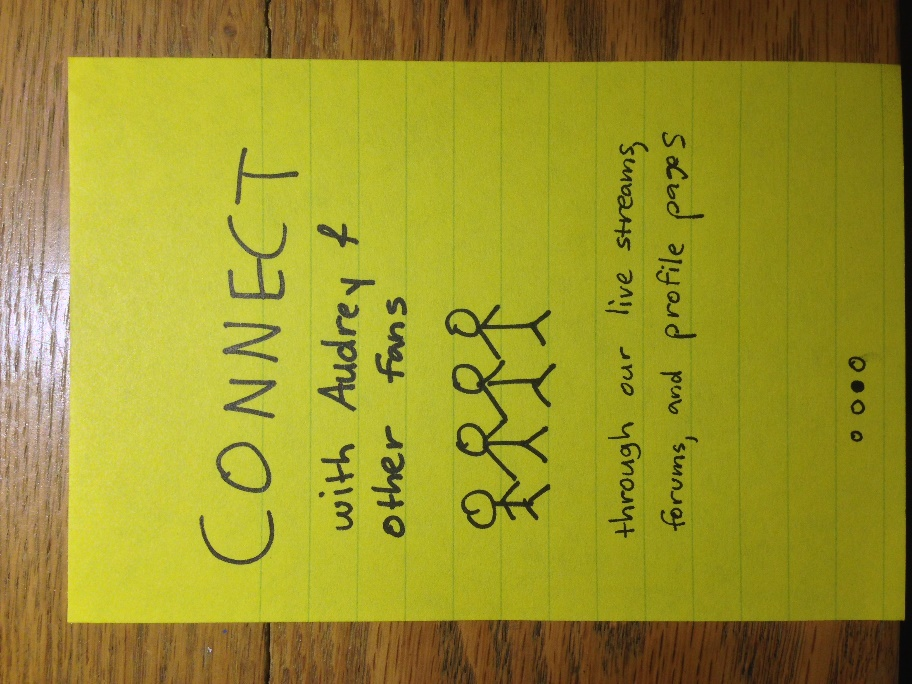 CONNECT
with Audrey &
other fans
through our live streams,
forums, and profile pages